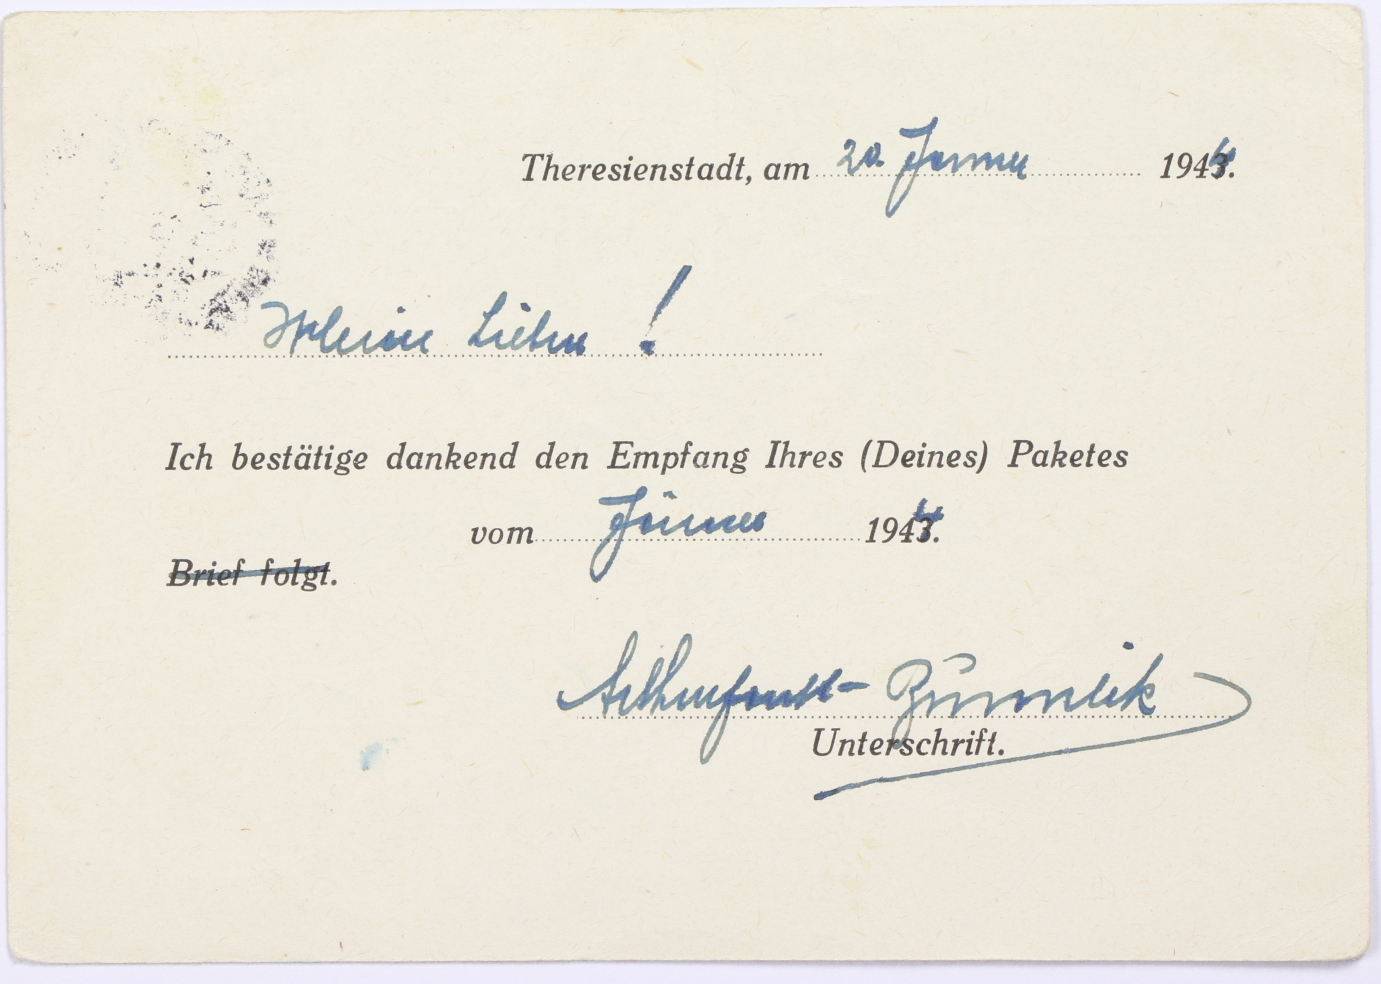 Theresienstadt, am 20. Jänner 1944.
Meine Lieben !
Ich bestätige dankend den Empfang Ihres (Deines) Paketes
vom Jänner 1944.
Brief folgt.
Unterschrift.